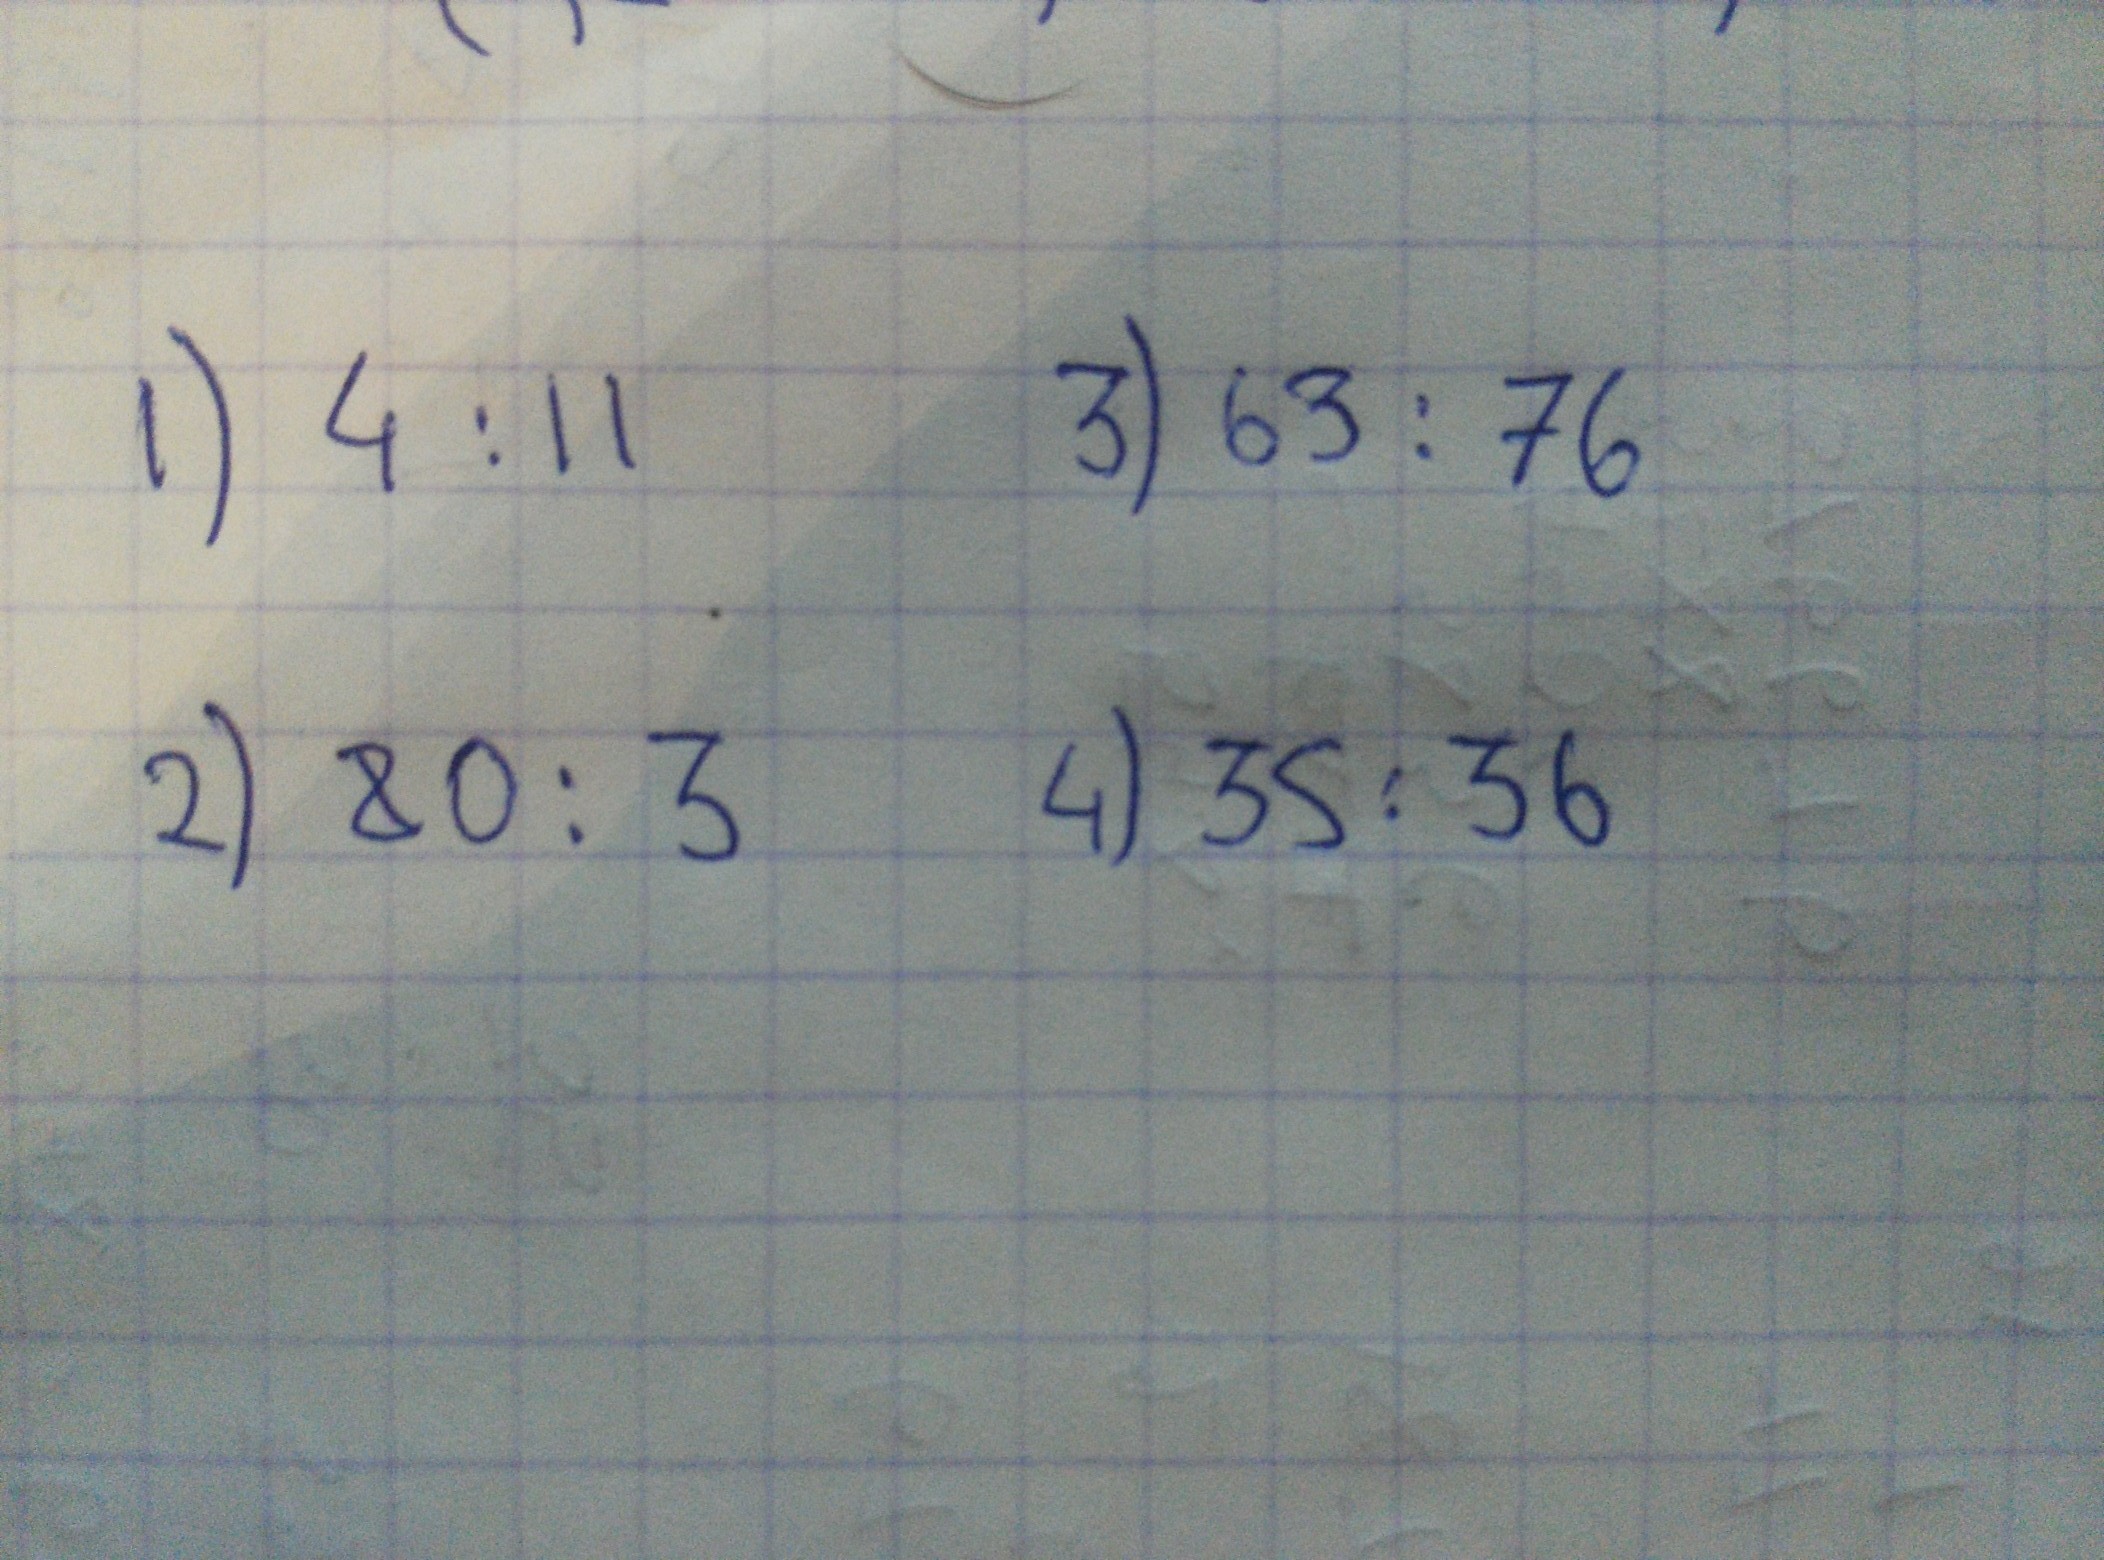 1) 4 : 11
2) 80 : 3
3) 63 : 76
4) 35 : 36